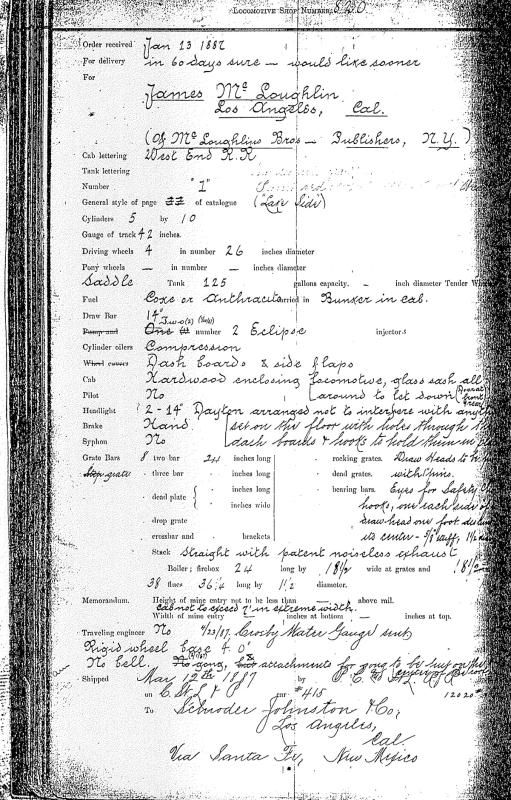 Locomotive Shop Number, 820
Order received Jan 13 1887
For delivery in 60 days sure — would like sooner
For
James Mc Loughlin
Los Angeles, Cal.
(Of Mc Loughlins Bros — Publishers, N.Y.)
Cab lettering West End R.R
Tank lettering
Number "1"
General style of page of catalogue ("Lake Side")
Cylinders 5 by 10
Gauge of track 42 inches.
Driving wheels 4 in number 26 inches diameter
Pony wheels — in number — inches diameter
Saddle Tank 125 gallons capacity. — inch diameter Tender
Fuel Coke or Anthracite carried in Bunker in cab.
Draw Bar 14"
Pump and One Two (2) number 2 Eclipse injectors
Cylinder oilers Compression
Wheel covers Dash boards & side flaps
Cab Hardwood enclosing locomotive, glass sash all
Pilot No around to let down
Headlight 2-14" Dayton arranged not to interfere with
Brake Hand. set on the floor with holes through
Syphon No dash boards & hooks to hold them in
Grate Bars 8 two bar 24 inches long rocking grates. Draw Heads to
Step grate three bar inches long dead grates. with pins.
dead plate inches long bearing bars. Eyes for Safety
inches wide hooks, one each side of
drop grate draw head one foot
crossbar and brackets its center
Stack Straight with patent noiseless exhaust
Boiler; firebox 24 long by 18½ wide at grates and 18½
38 flues 36¼ long by 1½ diameter.
Memorandum. Height of mine entry not to be less than — above rail.
Cab not to exceed 7' in extreme width.
Width of mine entry inches at bottom — inches at top.
Traveling engineer No 4/23/87, Crosby Water Gauge sent
Rigid wheel base 4' 0"
No bell. No gong, attachments for gong to be put on
Shipped Mar 12th 1887 by P. C. &
on C. St. L & car #415 12020
To Schroder Johnston & Co,
Los Angeles,
Cal.
Via Santa Fe, New Mexico